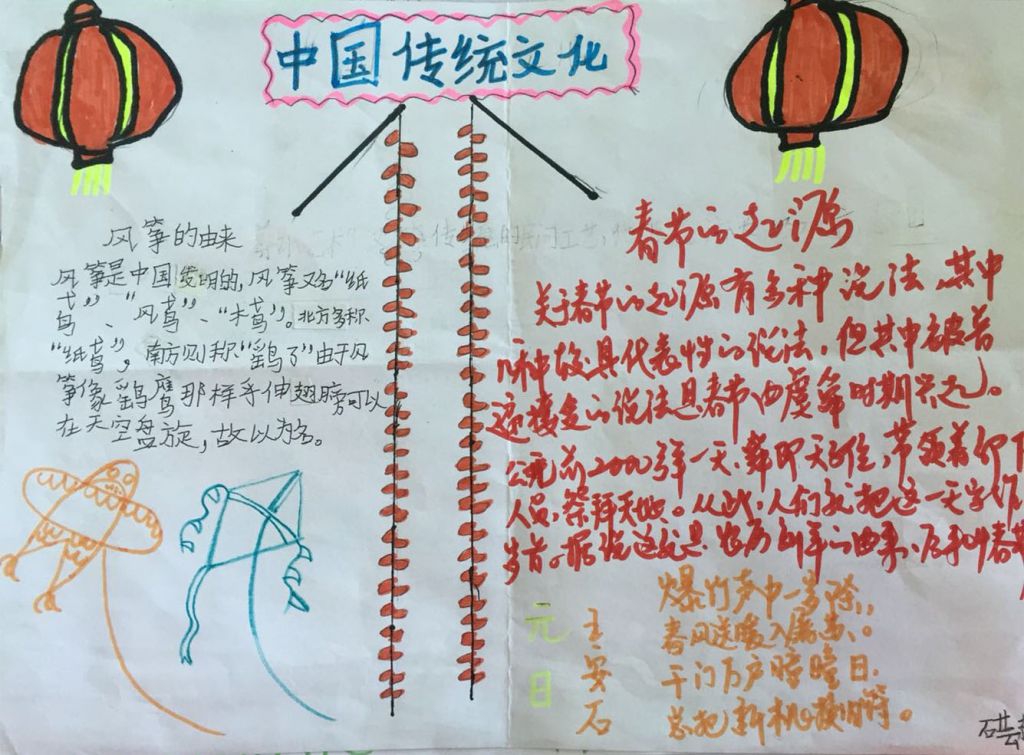 中国传统文化
风筝的由来
风筝是中国发明的,风筝又名“纸
鸢”、“风鸢”、“木鸢”。北方多称
“纸鸢”,南方则称“鹞子”由于风
筝像鹞鹰那样乎伸翅膀可以
在天空盘旋,故以为名。
春节的起源
关于春节的起源有多种说法,其中
几种较具代表性的说法,但其中被普
遍接受的说法是春节由虞舜时期兴起。
公元前2000多年一天,舜即天子位,带领着
人员,祭拜天地。从此,人们就把这一天
岁首。据说这就是农历新年的由来,后来叫春节
元日
王安石
爆竹声中一岁除,
春风送暖入屠苏。
千门万户瞳瞳日,
总把新桃换旧符。